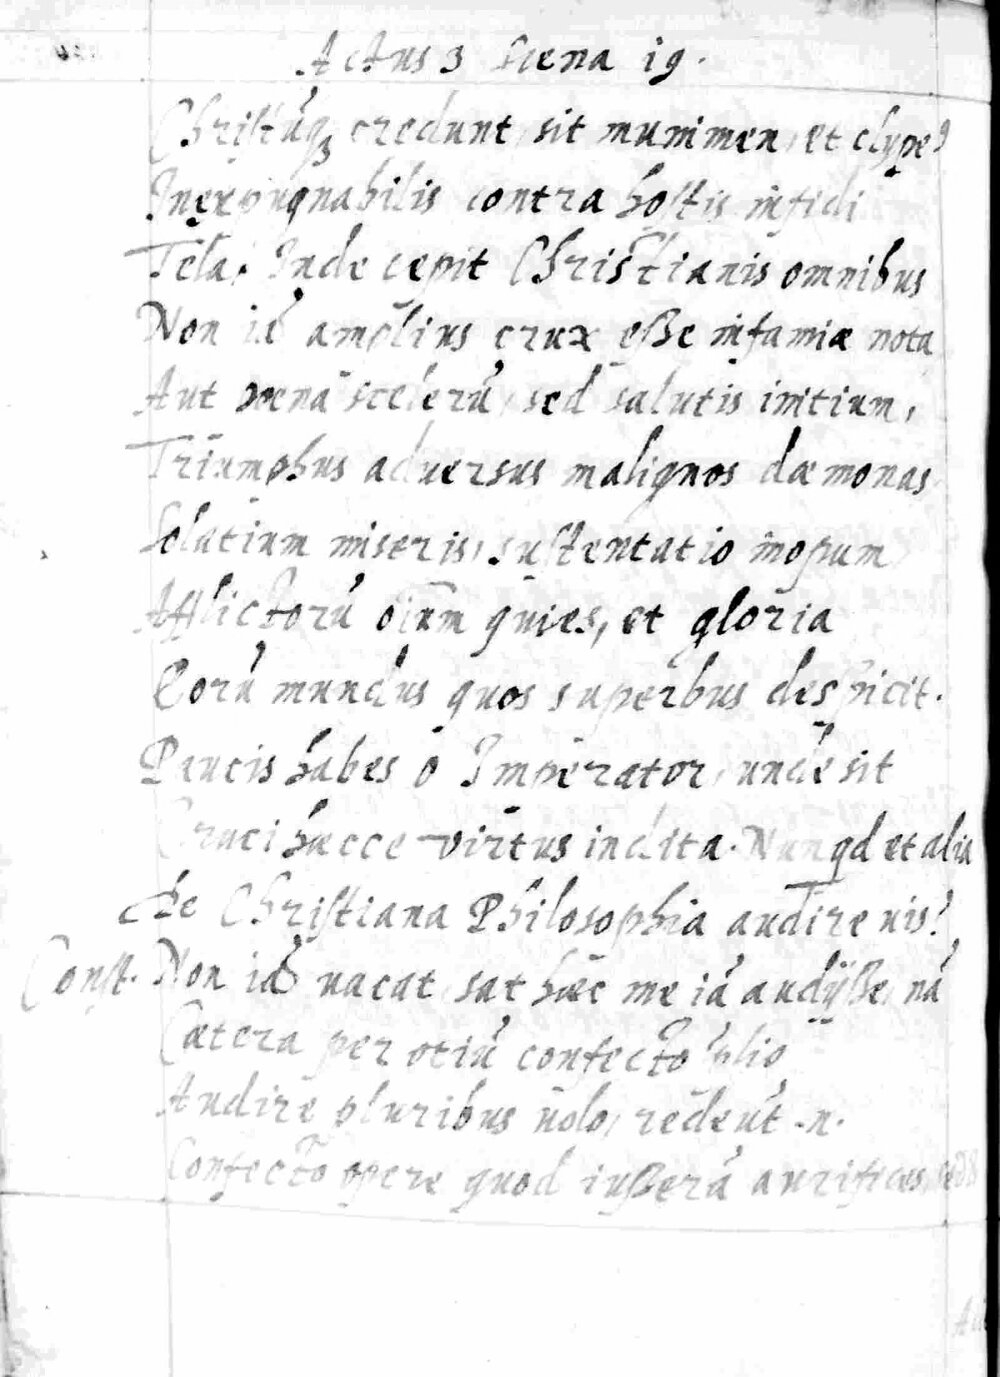 Actus 3 Scena 19.
Christūq3 credunt, sit munimen, et clype9
Inexpugnabilis contra hostis infidi
Tela. Inde cepit Christianis omnibus
Non iā amplius crux eße infamiæ nota
Aut pœna scelerū, sed salutis initium,
Triumphus aduersus malignos dæmonas
Solatium miseris, sustentatio inopum
Afflictorū oīum quies, et gloria
Eorū mundus quos superbus despicit.
Paucis habes o Imperator, unde sit
Cruci hæcce virtus indita. Nunqd et alia
de Christiana Philosophia audire uis?
Const. Non iā uacat, sat hæc me iā audijße, nā
Cætera per otiū confecto
Audire pluribus uolo, redeūt .n.
Confecto opere quod iußerā aurifices